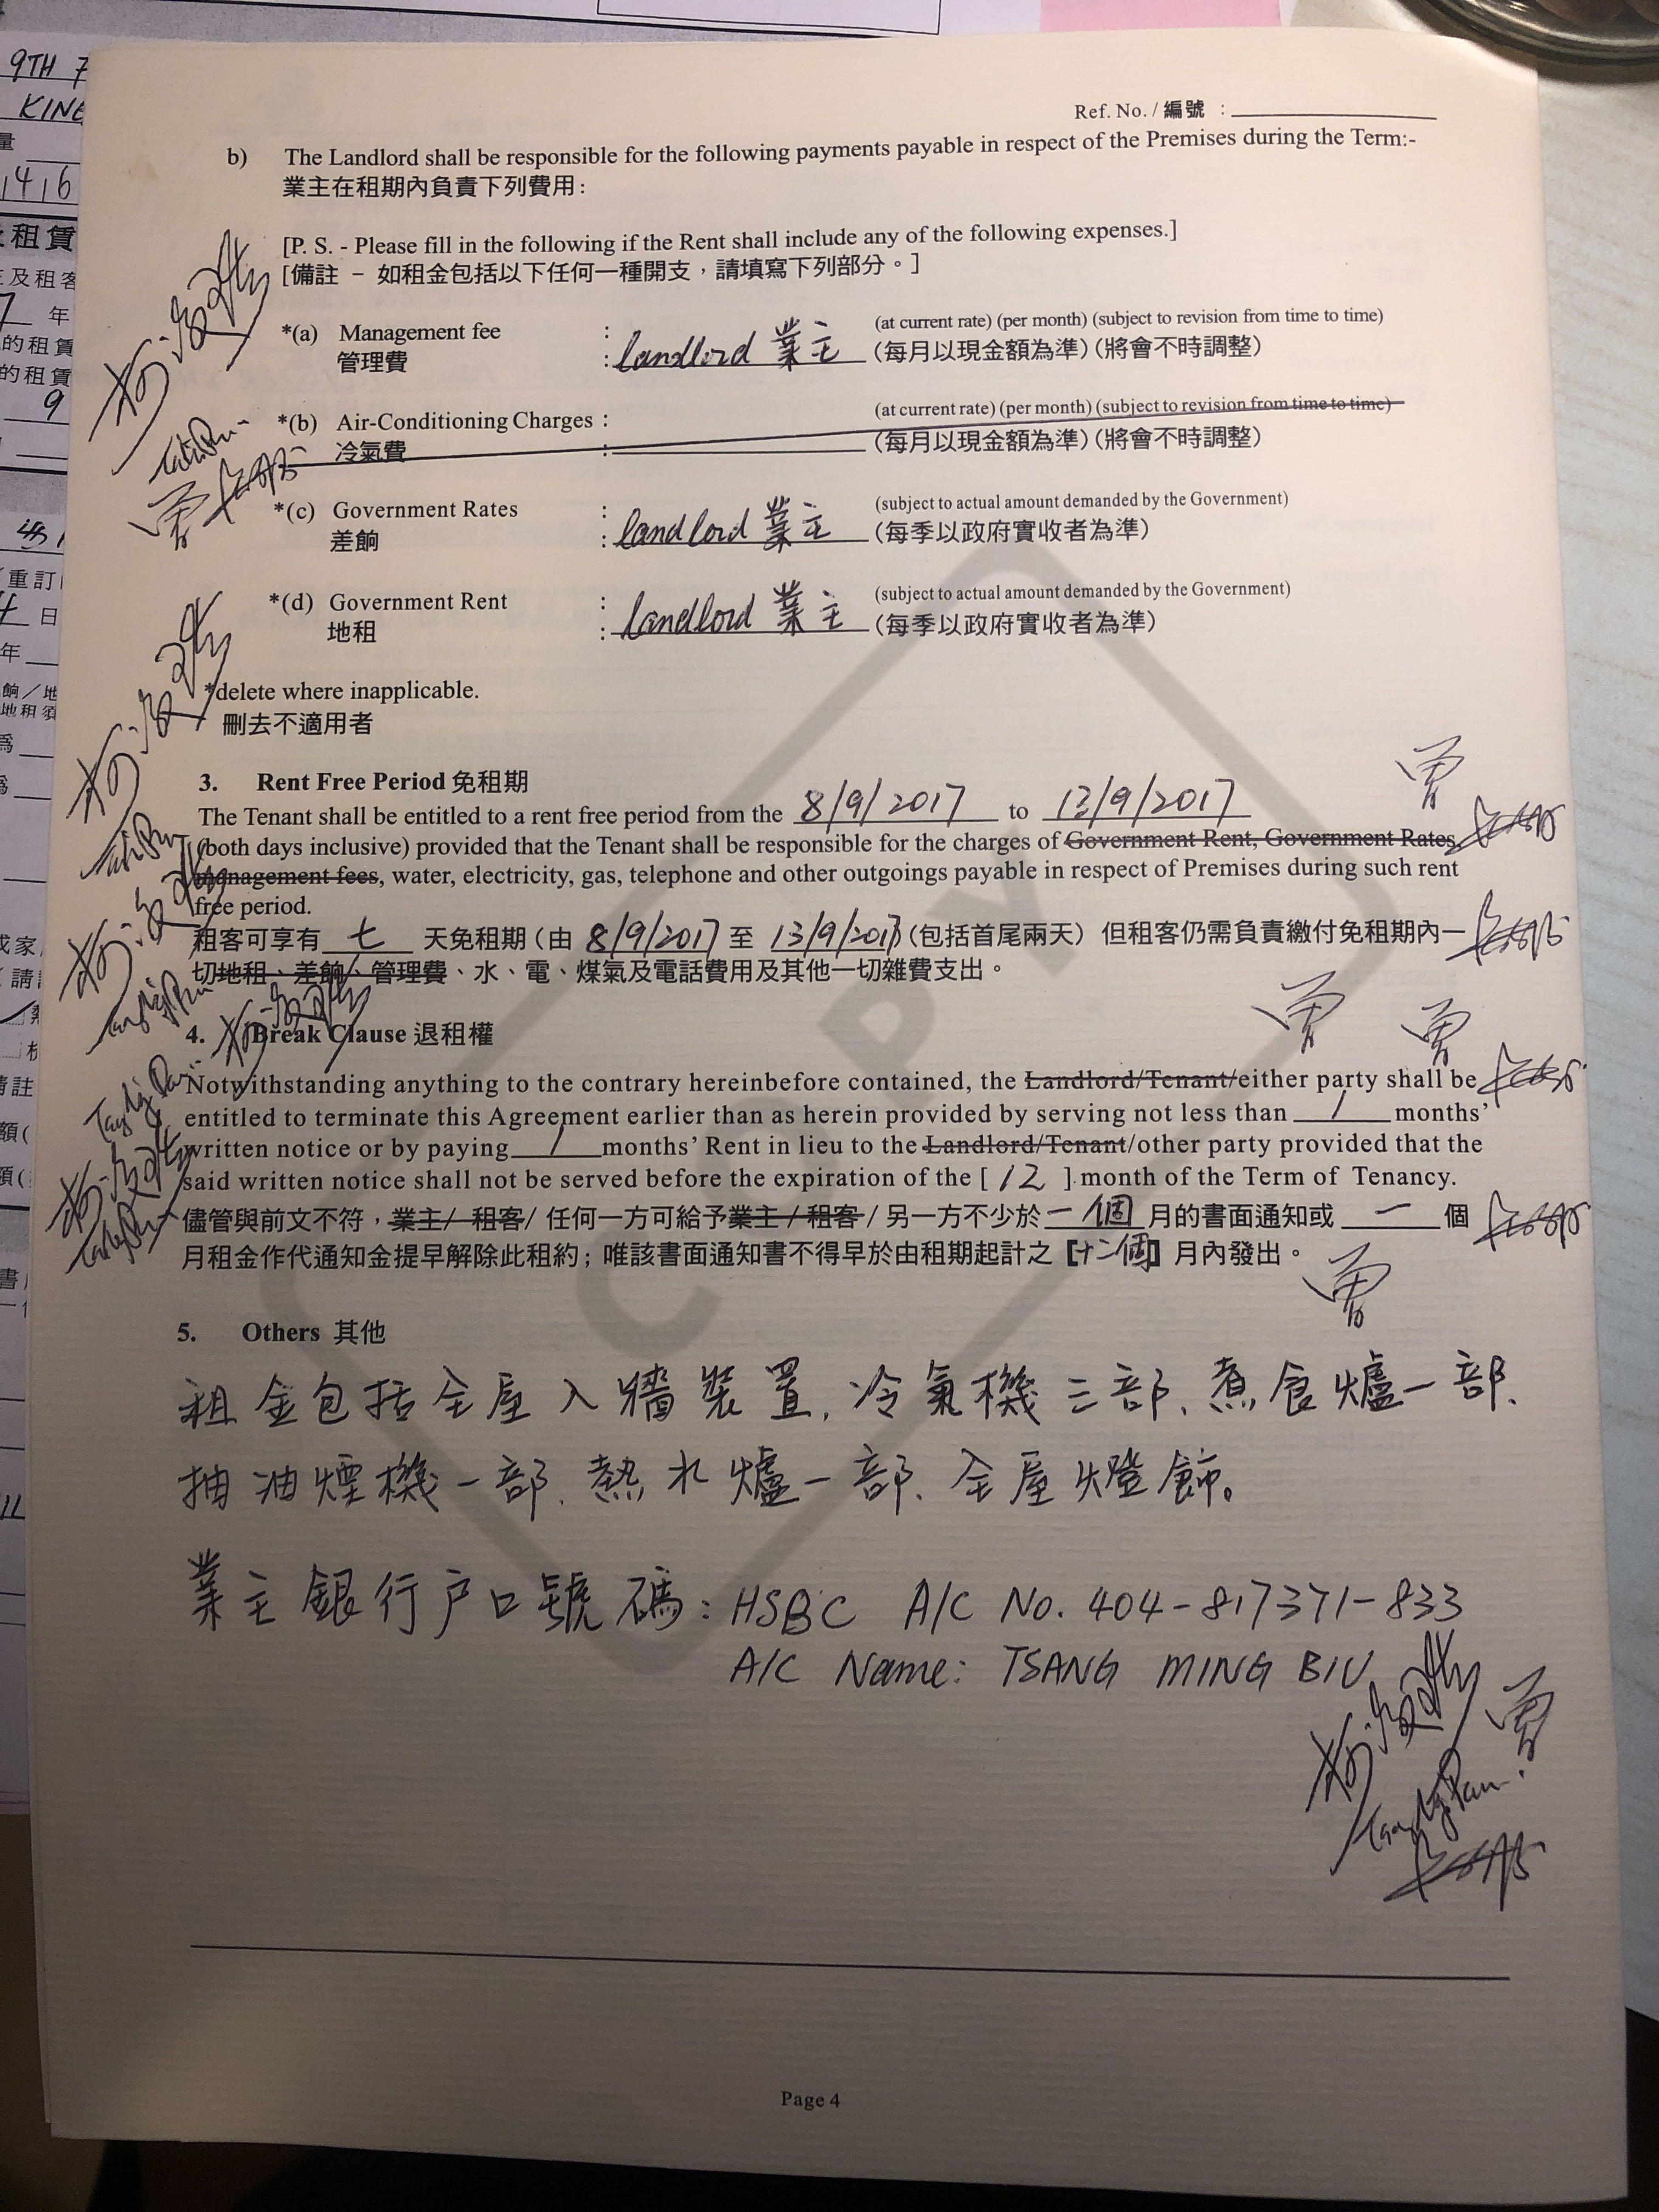 Ref. No. / 編號 :
b) The Landlord shall be responsible for the following payments payable in respect of the Premises during the Term:-
業主在租期內負責下列費用:
[P. S. - Please fill in the following if the Rent shall include any of the following expenses.]
[備註 – 如租金包括以下任何一種開支，請填寫下列部分。]
*(a) Management fee : (at current rate) (per month) (subject to revision from time to time)
管理費 : landlord 業主 (每月以現金額為準) (將會不時調整)
*(b) Air-Conditioning Charges : (at current rate) (per month) (subject to revision from time to time)
冷氣費 : (每月以現金額為準) (將會不時調整)
*(c) Government Rates : (subject to actual amount demanded by the Government)
差餉 : landlord 業主 (每季以政府實收者為準)
*(d) Government Rent : (subject to actual amount demanded by the Government)
地租 : landlord 業主 (每季以政府實收者為準)
*delete where inapplicable.
刪去不適用者
3. Rent Free Period 免租期
The Tenant shall be entitled to a rent free period from the 8/9/2017 to 13/9/2017
(both days inclusive) provided that the Tenant shall be responsible for the charges of Government Rent, Government Rates,
management fees, water, electricity, gas, telephone and other outgoings payable in respect of Premises during such rent
free period.
租客可享有 七 天免租期 (由 8/9/2017 至 13/9/2017 (包括首尾兩天) 但租客仍需負責繳付免租期內一
切地租、差餉、管理費、水、電、煤氣及電話費用及其他一切雜費支出。
4. Break Clause 退租權
Notwithstanding anything to the contrary hereinbefore contained, the Landlord/Tenant/either party shall be
entitled to terminate this Agreement earlier than as herein provided by serving not less than 1 months'
written notice or by paying 1 months' Rent in lieu to the Landlord/Tenant/other party provided that the
said written notice shall not be served before the expiration of the [ 12 ] month of the Term of Tenancy.
儘管與前文不符，業主/ 租客/ 任何一方可給予業主 / 租客 / 另一方不少於 一個 月的書面通知或 一 個
月租金作代通知金提早解除此租約; 唯該書面通知書不得早於由租期起計之 [十二個] 月內發出。
5. Others 其他
租金包括全屋入牆裝置、冷氣機三部、煮食爐一部、
抽油煙機一部、熱水爐一部、全屋燈飾。
業主銀行户口號碼: HSBC A/C No. 404-817371-833
A/C Name: TSANG MING BIU
COPY
Page 4
9TH
1416
租賃
及租客
年
的租賃
的租賃
9
重訂
日
年